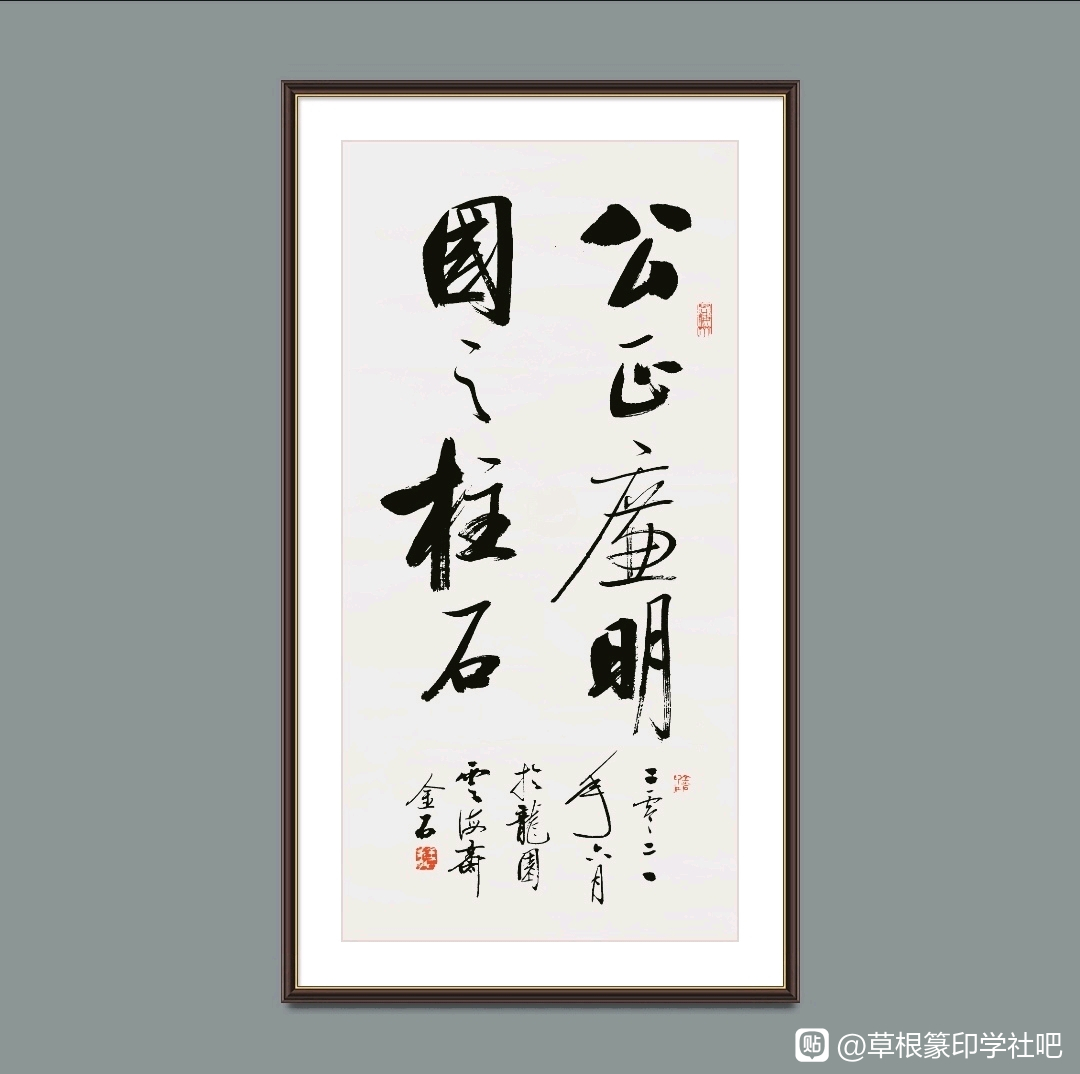 公正廉明
國之柱石
二零二一
年六月
於龍園
雲海齋
金石
@草根篆印学社吧